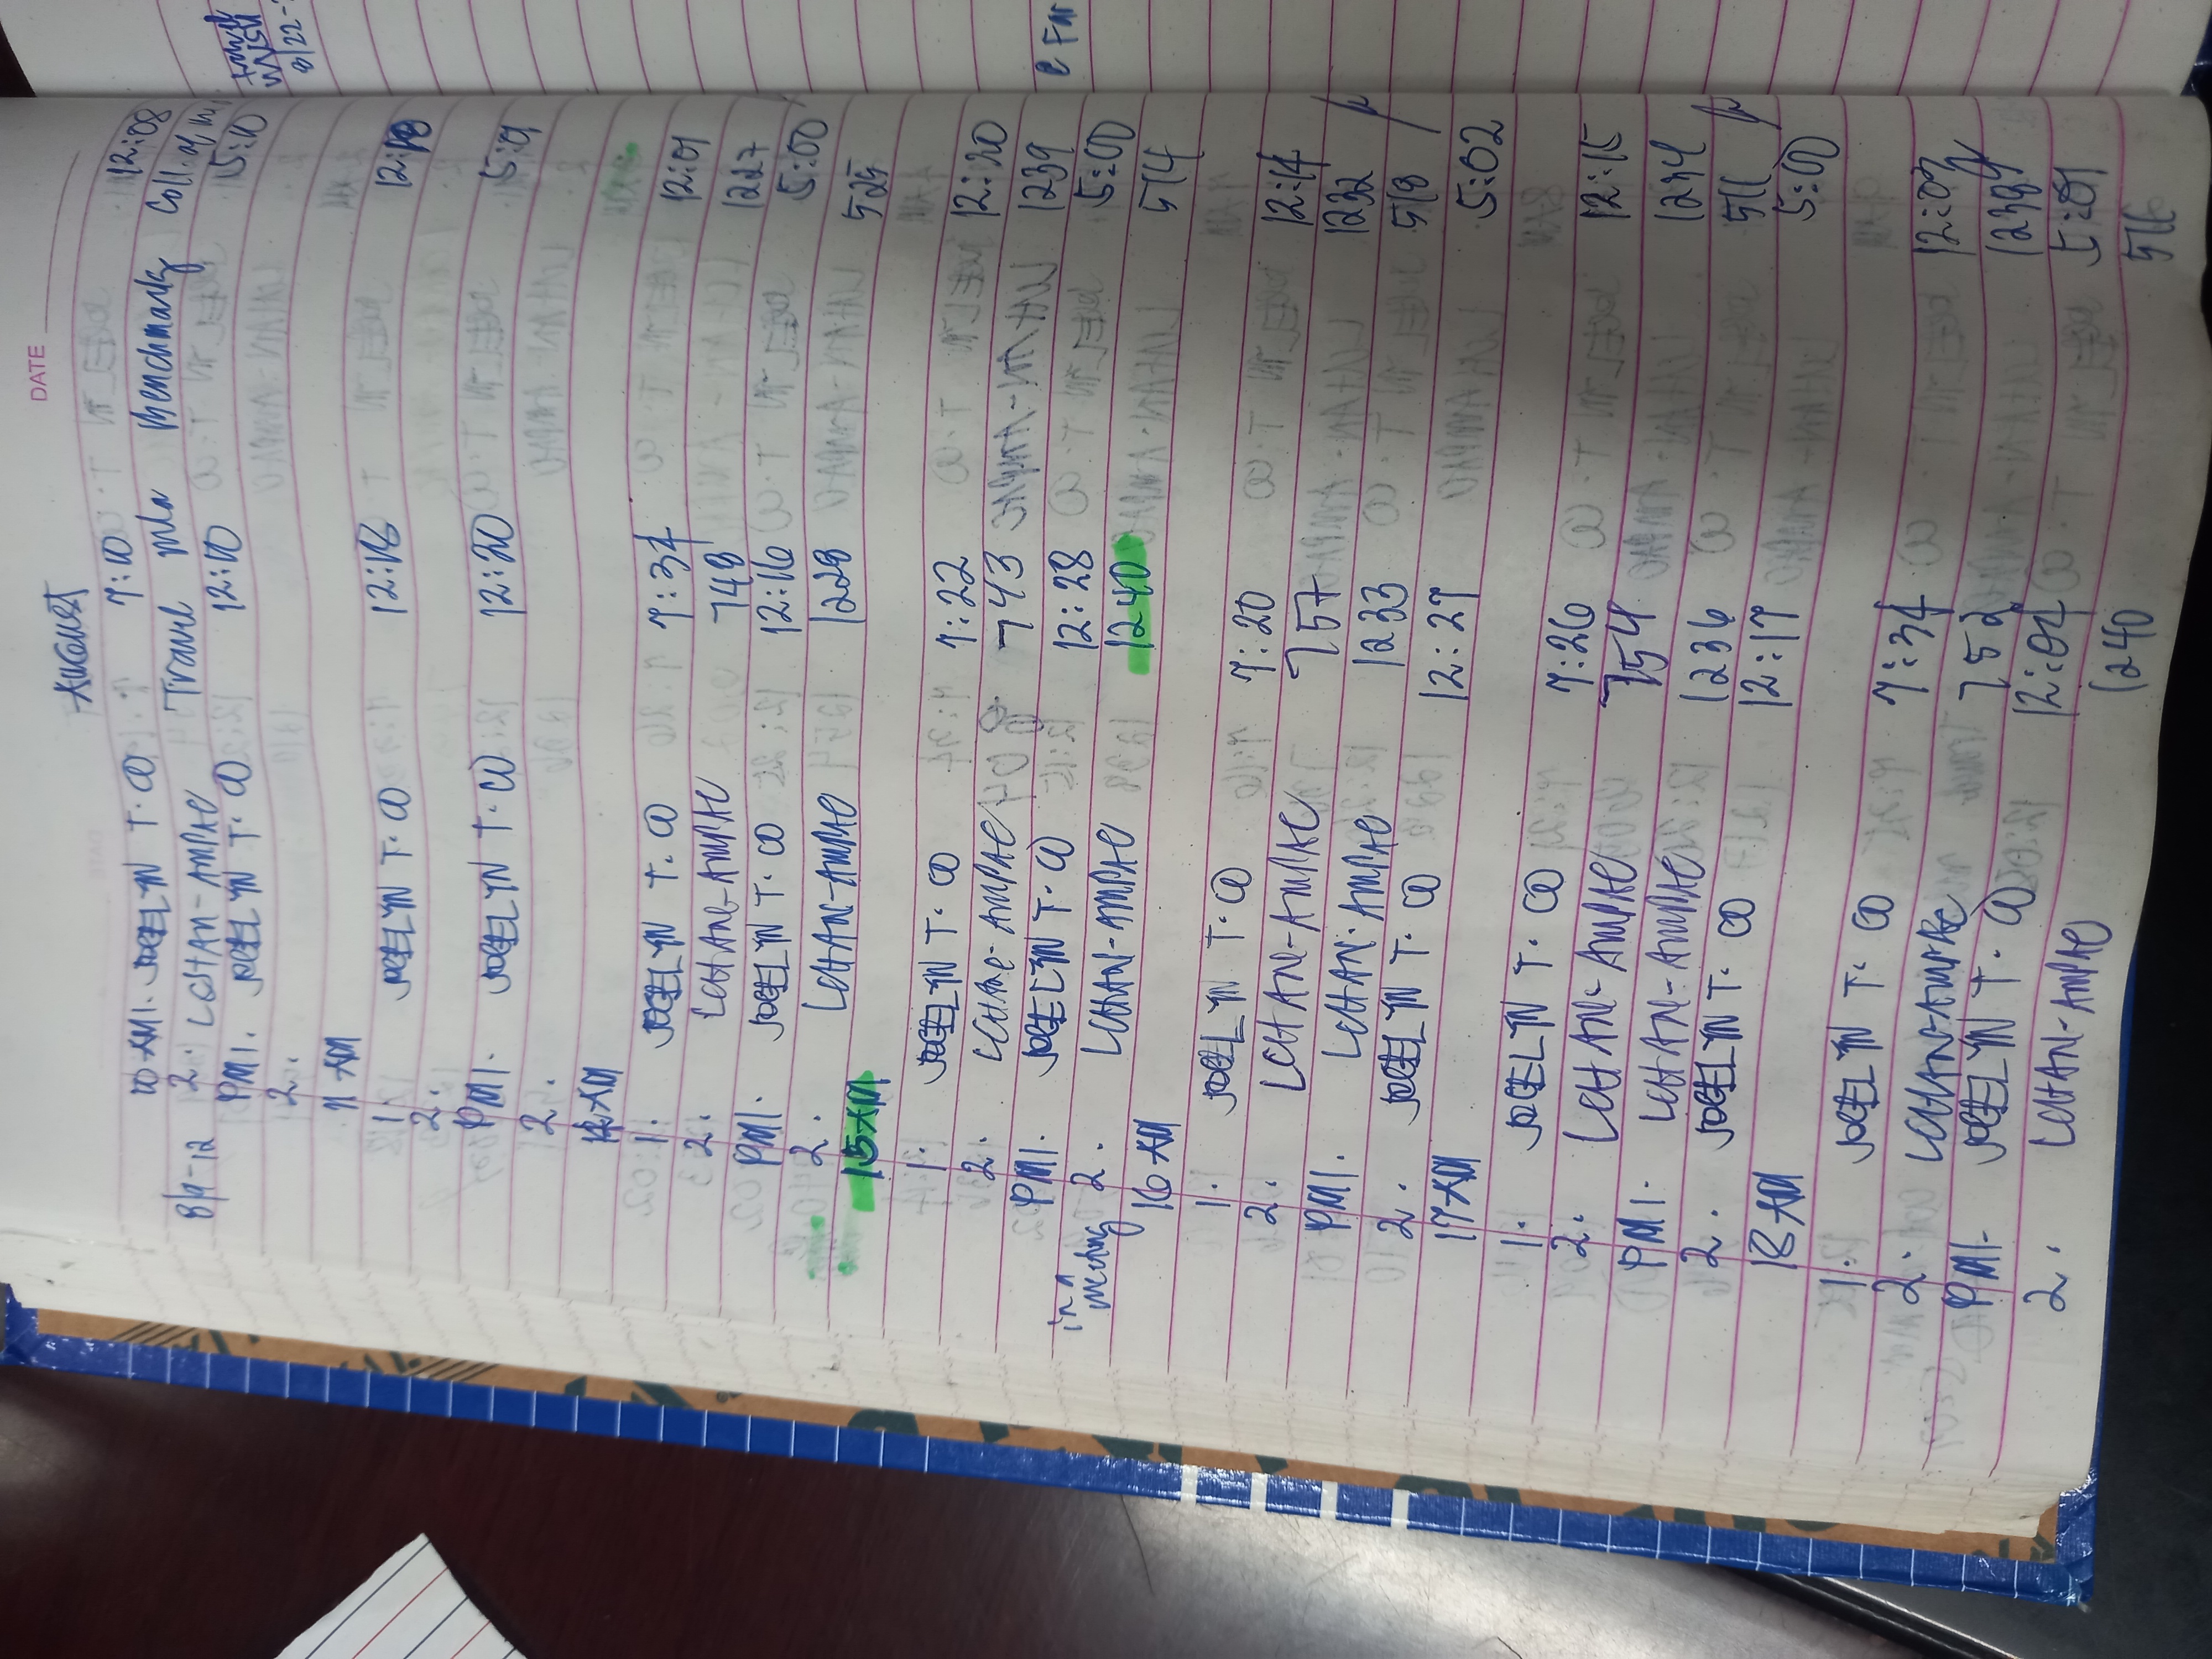 DATE
AUGUST
10 AM 1. JOCELYN T. CO 7:10 12:08
8/9-12 2. LCHAN-AMPAC Travel mla Benchmark
PM 1. JOCELYN T. CO 12:10 5:10
2.
11 AM
1 JOCELYN T. CO 12:18
2.
PM 1. JOCELYN T. CO 12:20 5:01
2.
12 AM
1. JOCELYN T. CO 7:34 12:01
2. LCHAN-AMPAC 748 1227
PM 1. JOCELYN T. CO 12:16 5:00
2. LCHAN-AMPAC 1228 525
15 AM
1. JOCELYN T. CO 7:22 12:20
2. LCHAN-AMPAC 743 1239
PM 1. JOCELYN T. CO 12:28 5:00
in a meeting 2. LCHAN-AMPAC 1240 514
16 AM
1. JOCELYN T. CO 7:20 12:14
2. LCHAN-AMPAC 757 1232
PM 1. LCHAN-AMPAC 1233 518
2. JOCELYN T. CO 12:27 5:02
17 AM
1. JOCELYN T. CO 7:26 12:15
2. LCHAN-AMPAC 754 1234
PM 1. LCHAN-AMPAC 1236 511
2. JOCELYN T. CO 12:17 5:00
18 AM
1. JOCELYN T. CO 7:34 12:03
2. LCHAN-AMPAC 752 1239
PM 1. JOCELYN T. CO 12:04 5:01
2. LCHAN-AMPAC 1240 516